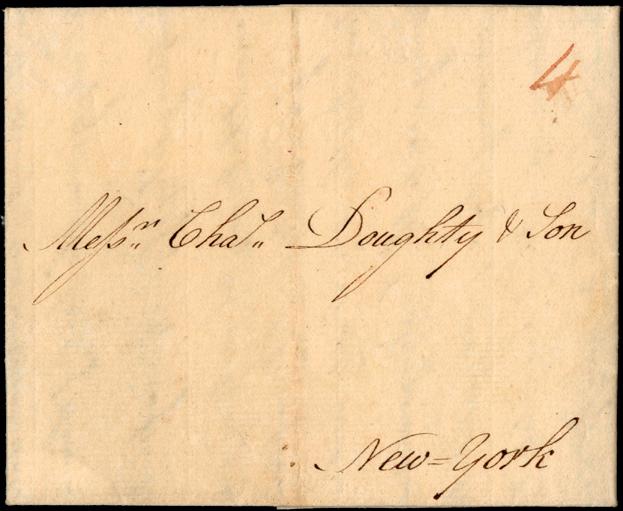 4
Messrs. Chas. Doughty & Son
New=York